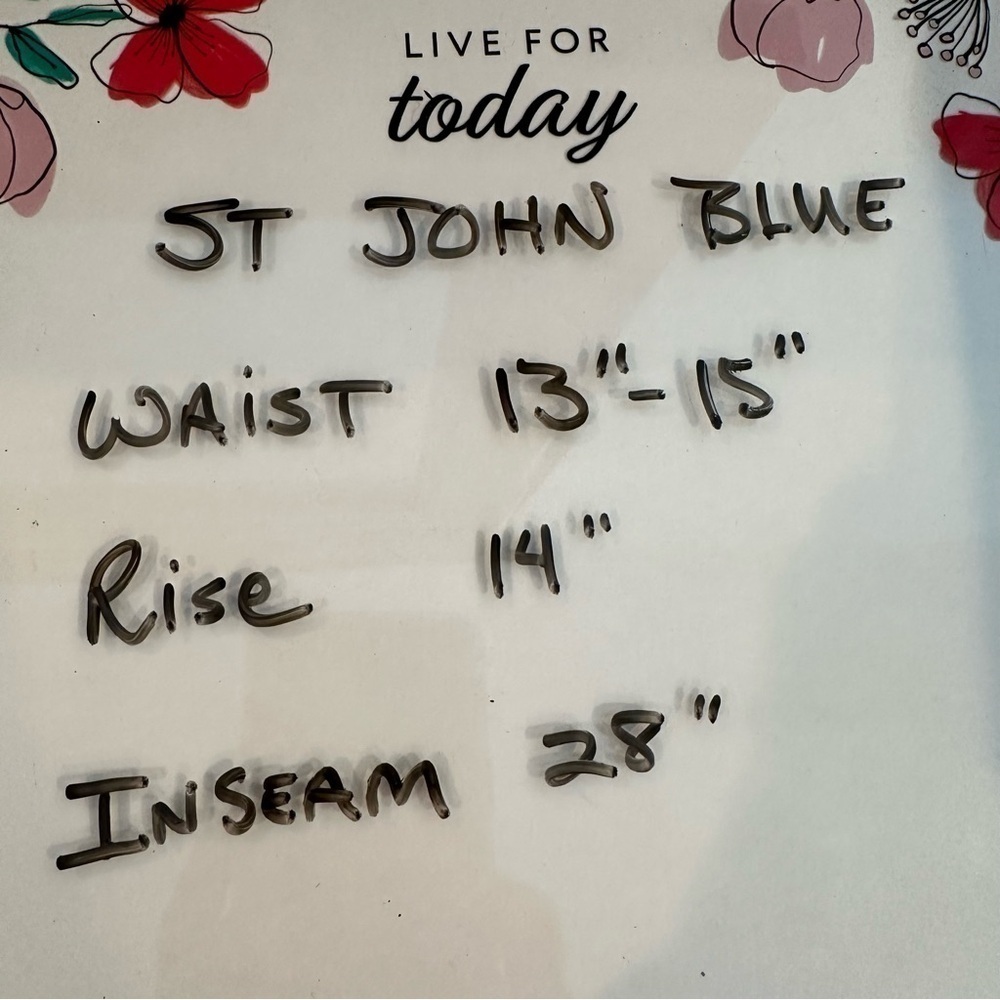 LIVE FOR
today
ST JOHN BLUE
WAiST 13"-15"
Rise 14"
INSEAM 28"